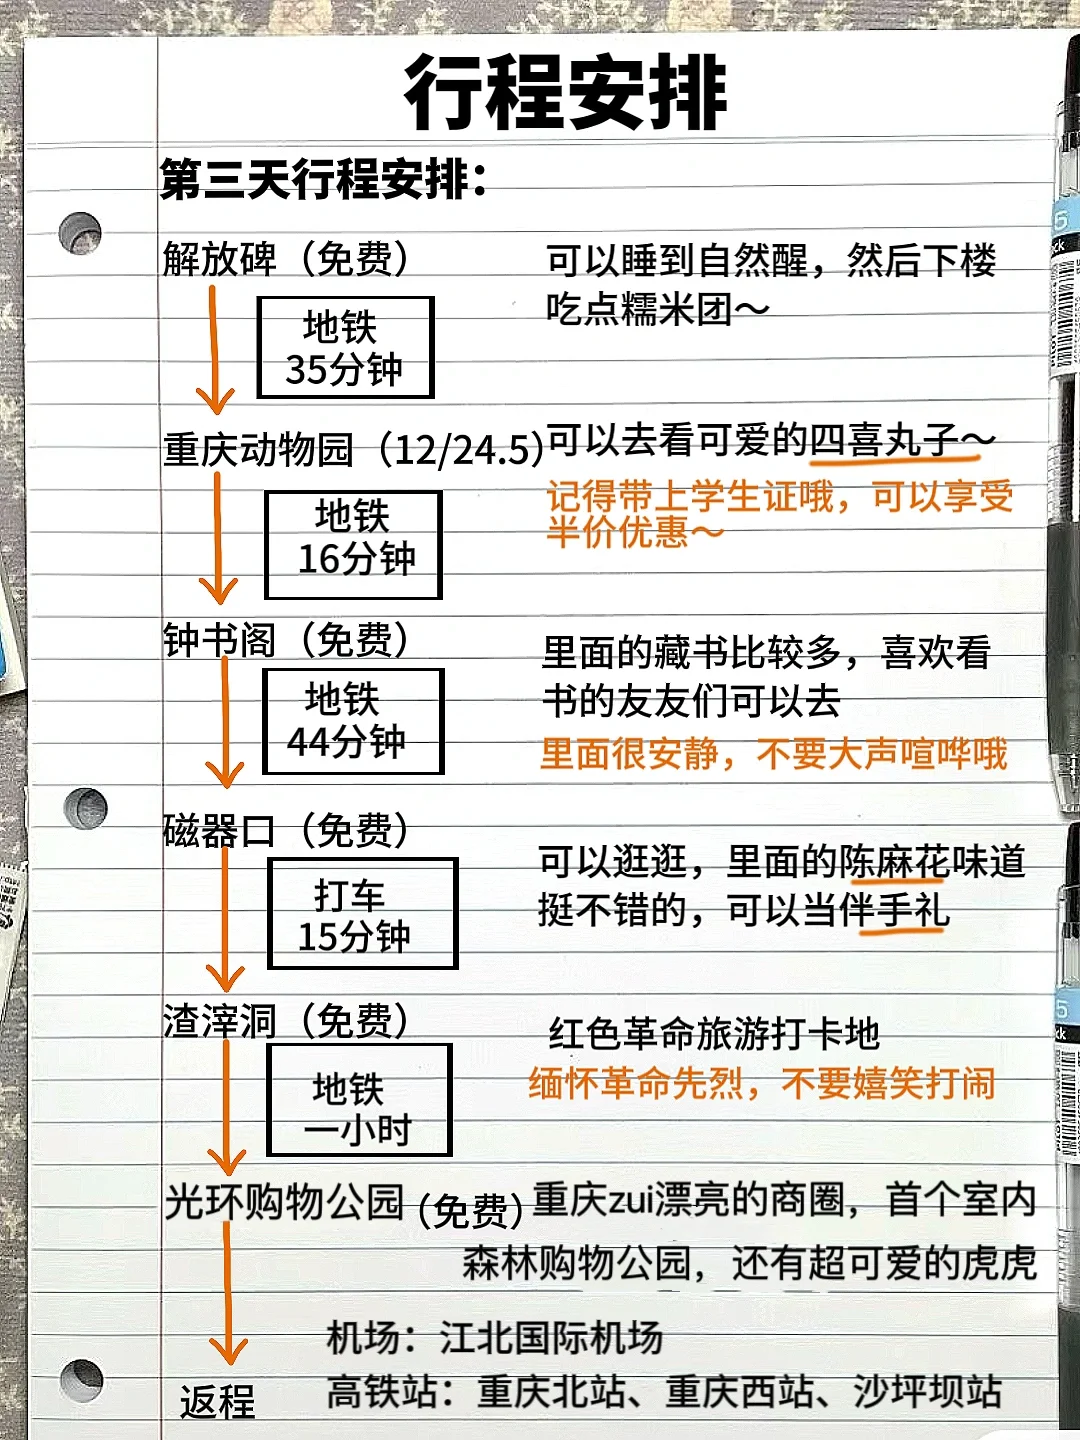 行程安排
第三天行程安排：
解放碑（免费）
可以睡到自然醒，然后下楼
吃点糯米团～
地铁
35分钟
重庆动物园（12/24.5）
可以去看可爱的四喜丸子～
记得带上学生证哦，可以享受
半价优惠～
地铁
16分钟
钟书阁（免费）
里面的藏书比较多，喜欢看
书的友友们可以去
里面很安静，不要大声喧哗哦
地铁
44分钟
磁器口（免费）
可以逛逛，里面的陈麻花味道
挺不错的，可以当伴手礼
打车
15分钟
渣滓洞（免费）
红色革命旅游打卡地
缅怀革命先烈，不要嬉笑打闹
地铁
一小时
光环购物公园（免费）
重庆zui漂亮的商圈，首个室内
森林购物公园，还有超可爱的虎虎
返程
机场：江北国际机场
高铁站：重庆北站、重庆西站、沙坪坝站